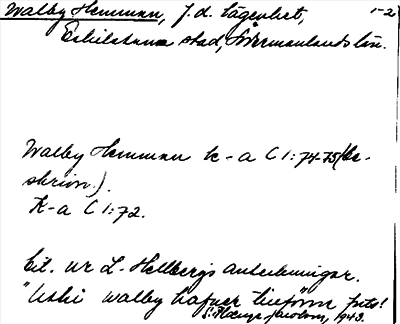 Walby Hemman, f.d. lägenhet, 1-2
Eskilstuna stad, Södermanlands län.
Walby Hemman k-a C I:74-75 (be-
skrivn.).
K-a C I:72.
Cit. ur L. Hellbergs anteckningar.
"Uthi Walby hafver
S. 1943.